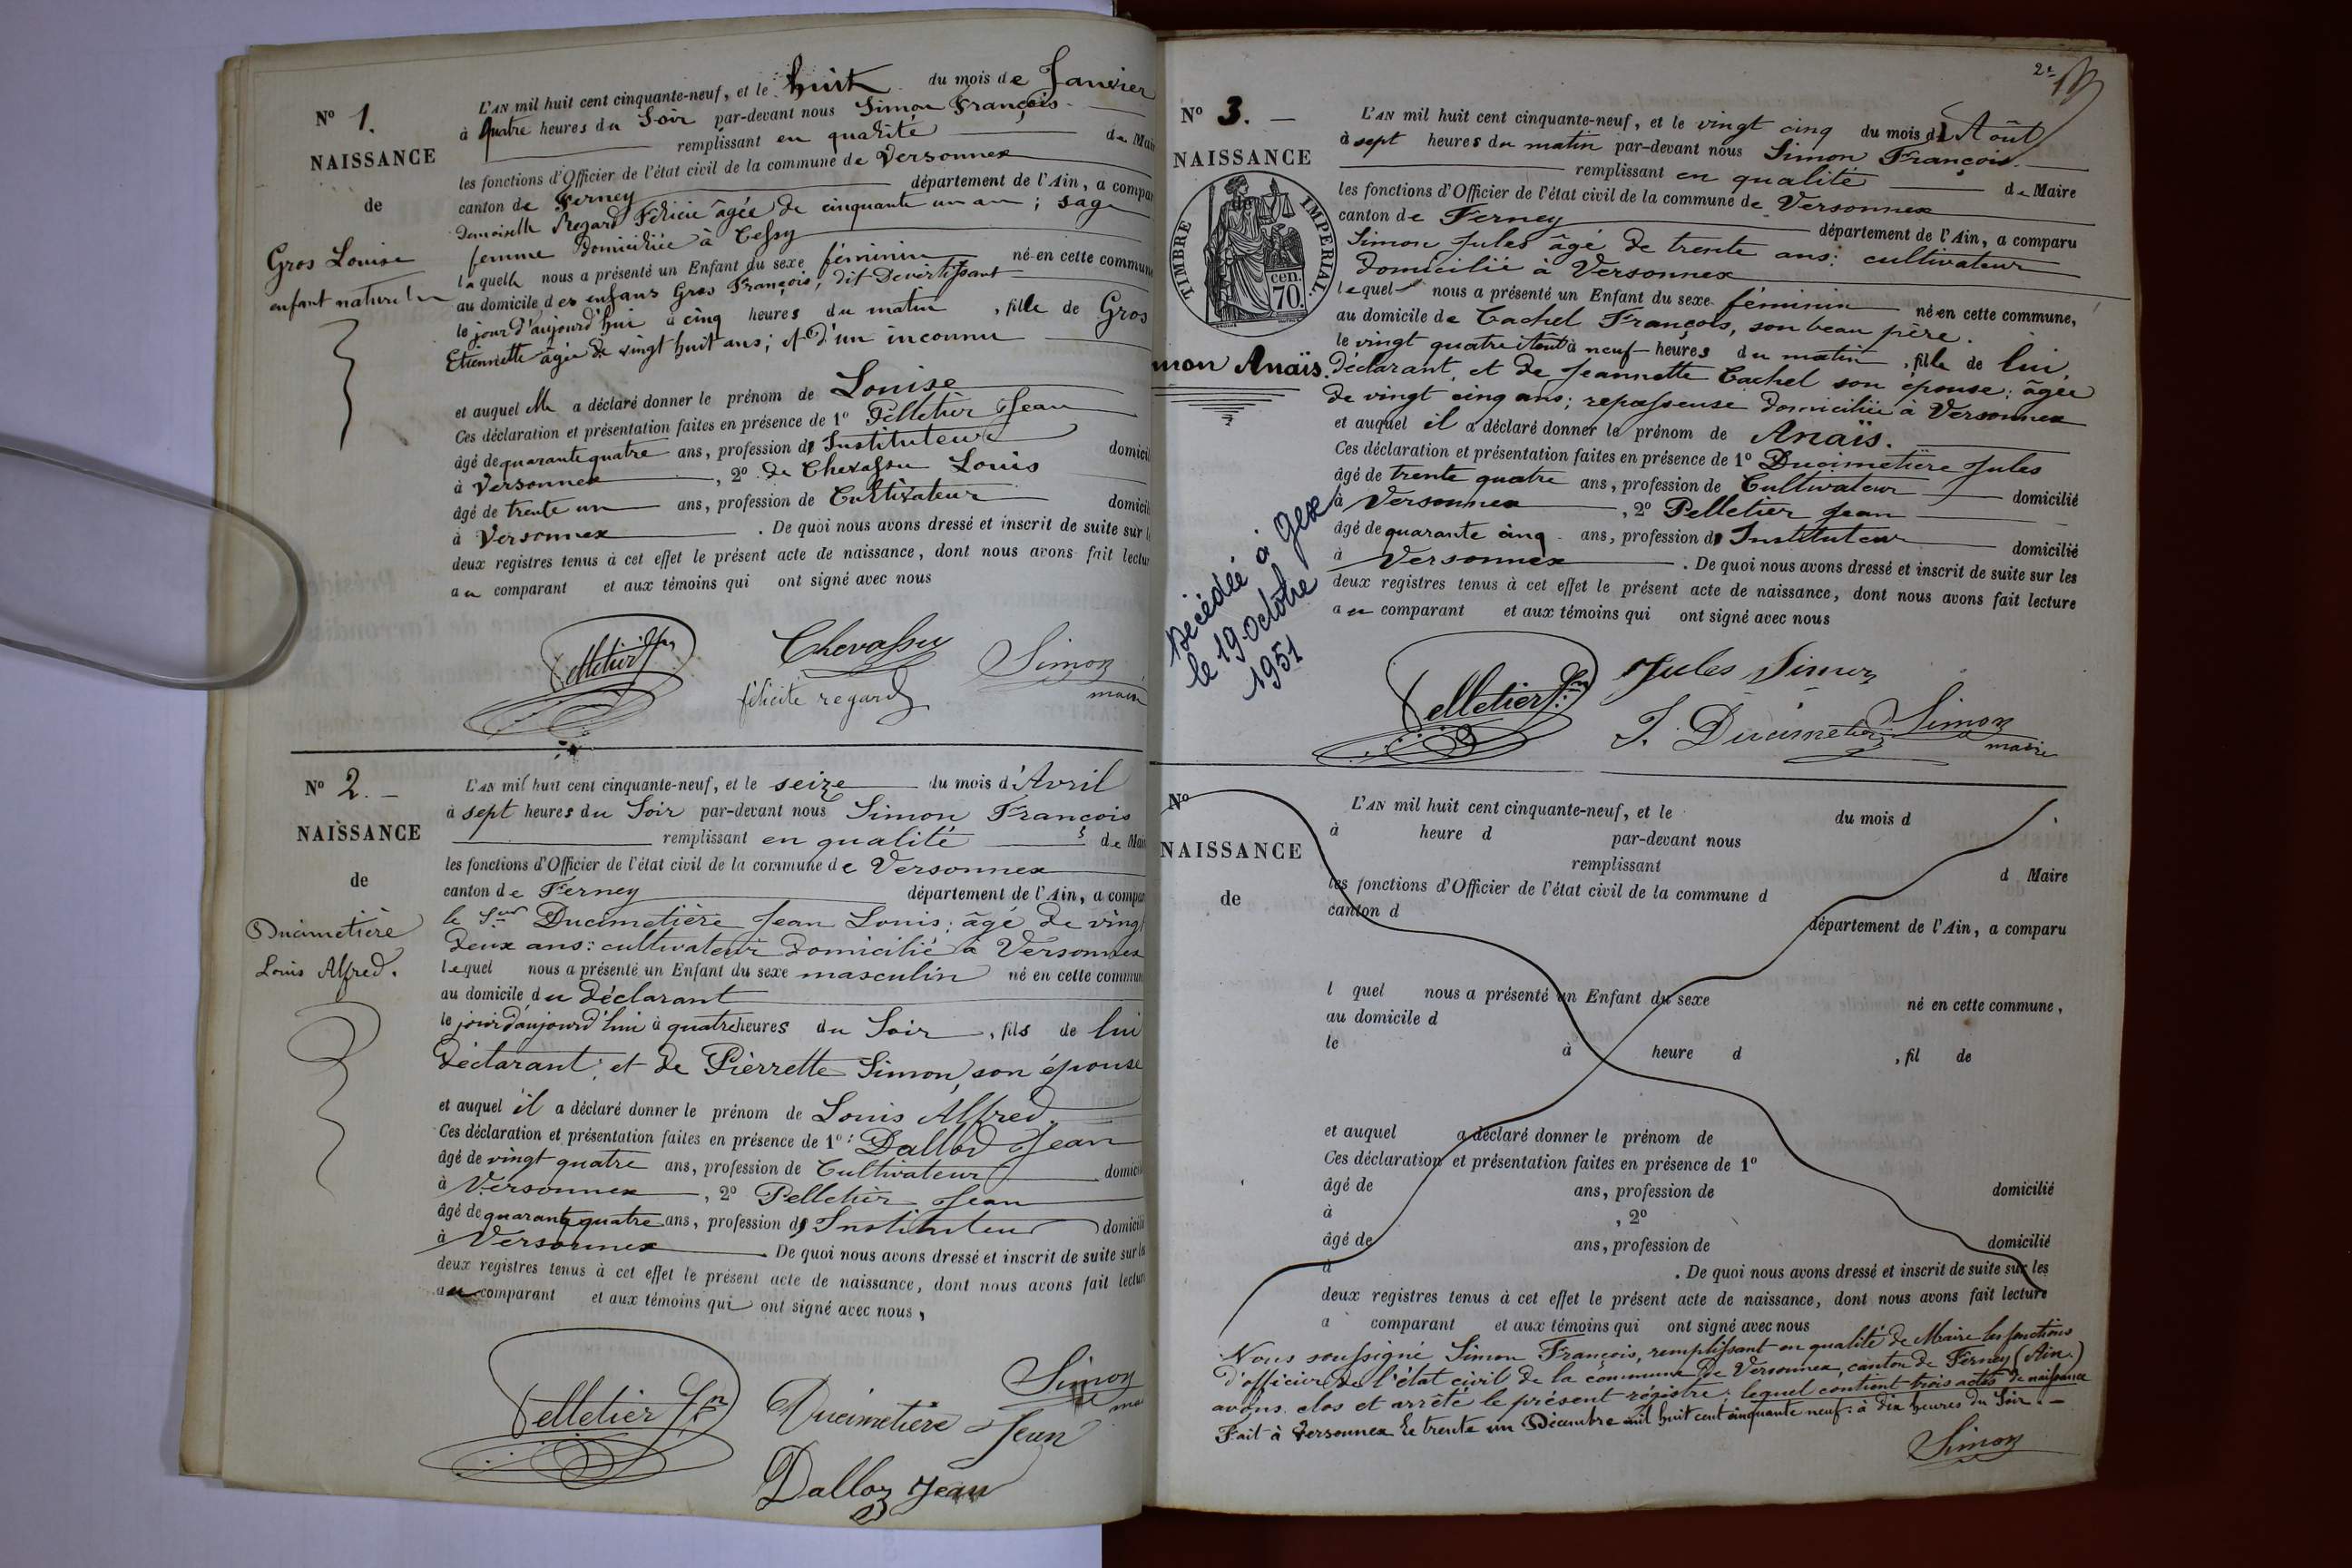 N° 1.
NAISSANCE
de
Gros Louise
enfant naturel
L'AN mil huit cent cinquante-neuf, et le huit du mois de Janvier
à quatre heures du Soir par-devant nous Simon François
remplissant en qualité de Mai
les fonctions d'Officier de l'état civil de la commune de Versonnex
canton de Ferney département de l'Ain, a compar
Demoiselle Regard Félicie âgée de cinquante un an ; sage
femme domiciliée à Cessy
laquelle nous a présenté un Enfant du sexe féminin né en cette commune
au domicile des enfans Gros François, dit Devertissant
le jour d'aujourd'hui à cinq heures du matin, fille de Gros
Etiennette âgée de vingt huit ans ; et d'un inconnu
et auquel elle a déclaré donner le prénom de Louise
Ces déclaration et présentation faites en présence de 1° Pelletier Jean
âgé de quarante quatre ans, profession d' Instituteur domicil
à Versonnex, 2° de Chevassu Louis
âgé de trente un ans, profession de Cultivateur domicil
à Versonnex. De quoi nous avons dressé et inscrit de suite sur l
deux registres tenus à cet effet le présent acte de naissance, dont nous avons fait lectur
au comparant et aux témoins qui ont signé avec nous
Pelletier Jn Chevassu Simon
félicité regard maire
N° 2.
NAISSANCE
de
Ducimetière
Louis Alfred.
L'AN mil huit cent cinquante-neuf, et le seize du mois d'Avril
à sept heures du Soir par-devant nous Simon François
remplissant en qualité de Mai
les fonctions d'Officier de l'état civil de la commune de Versonnex
canton de Ferney département de l'Ain, a compar
le Sieur Ducimetière Jean Louis ; âgé de vingt
deux ans : cultivateur domicilié à Versonnex
lequel nous a présenté un Enfant du sexe masculin né en cette commun
au domicile du déclarant
le jour d'aujourd'hui à quatre heures du Soir, fils de lui
déclarant ; et de Pierrette Simon, son épouse
et auquel il a déclaré donner le prénom de Louis Alfred.
Ces déclaration et présentation faites en présence de 1° : Dalloz Jean
âgé de vingt quatre ans, profession de Cultivateur domicil
à Versonnex, 2° Pelletier Jean
âgé de quarante quatre ans, profession d' Instituteur domicili
à Versonnex. De quoi nous avons dressé et inscrit de suite sur les
deux registres tenus à cet effet le présent acte de naissance, dont nous avons fait lectur
au comparant et aux témoins qui ont signé avec nous,
Simon
Pelletier Jn Ducimetière Jean ma
Dalloz Jean
2e
N° 3.
NAISSANCE
TIMBRE IMPERIAL.
70. cen.
mon Anaïs.
Décédée à Gex
le 19 octobre
1951
L'AN mil huit cent cinquante-neuf, et le vingt cinq du mois d'Août
à sept heures du matin par-devant nous Simon François.
remplissant en qualité de Maire
les fonctions d'Officier de l'état civil de la commune de Versonnex
canton de Ferney département de l'Ain, a comparu
Simon Jules âgé de trente ans : cultivateur
domicilié à Versonnex
lequel nous a présenté un Enfant du sexe féminin né en cette commune,
au domicile de Cachet François, son beau père.
le vingt quatre Août à neuf heures du matin, fille de lui
déclarant, et de Jeannette Cachet son épouse ; âgée
de vingt cinq ans ; repasseuse domiciliée à Versonnex
et auquel il a déclaré donner le prénom de Anaïs.
Ces déclaration et présentation faites en présence de 1° Ducimetière Jules
âgé de trente quatre ans, profession de Cultivateur domicilié
à Versonnex, 2° Pelletier Jean
âgé de quarante cinq ans, profession d' Instituteur domicilié
à Versonnex. De quoi nous avons dressé et inscrit de suite sur les
deux registres tenus à cet effet le présent acte de naissance, dont nous avons fait lecture
au comparant et aux témoins qui ont signé avec nous
Jules Simon
Pelletier Jn J. Ducimetière Simon
maire
N°
NAISSANCE
de
L'AN mil huit cent cinquante-neuf, et le du mois d
à heure d par-devant nous
remplissant d Maire
les fonctions d'Officier de l'état civil de la commune d
canton d département de l'Ain, a comparu
l quel nous a présenté un Enfant du sexe né en cette commune,
au domicile d
le à heure d , fil de
et auquel a déclaré donner le prénom de
Ces déclaration et présentation faites en présence de 1°
âgé de ans, profession de domicilié
à , 2°
âgé de ans, profession de domicilié
à . De quoi nous avons dressé et inscrit de suite sur les
deux registres tenus à cet effet le présent acte de naissance, dont nous avons fait lecture
a comparant et aux témoins qui ont signé avec nous
Nous soussigné Simon François, remplissant en qualité de Maire les fonctions
d'officier de l'état civil de la commune de Versonnex, canton de Ferney (Ain.)
avons clos et arrêté le présent régistre : lequel contient trois actes de naissance
Fait à Versonnex le trente un Décembre mil huit cent cinquante neuf : à dix heures du Soir. -
Simon